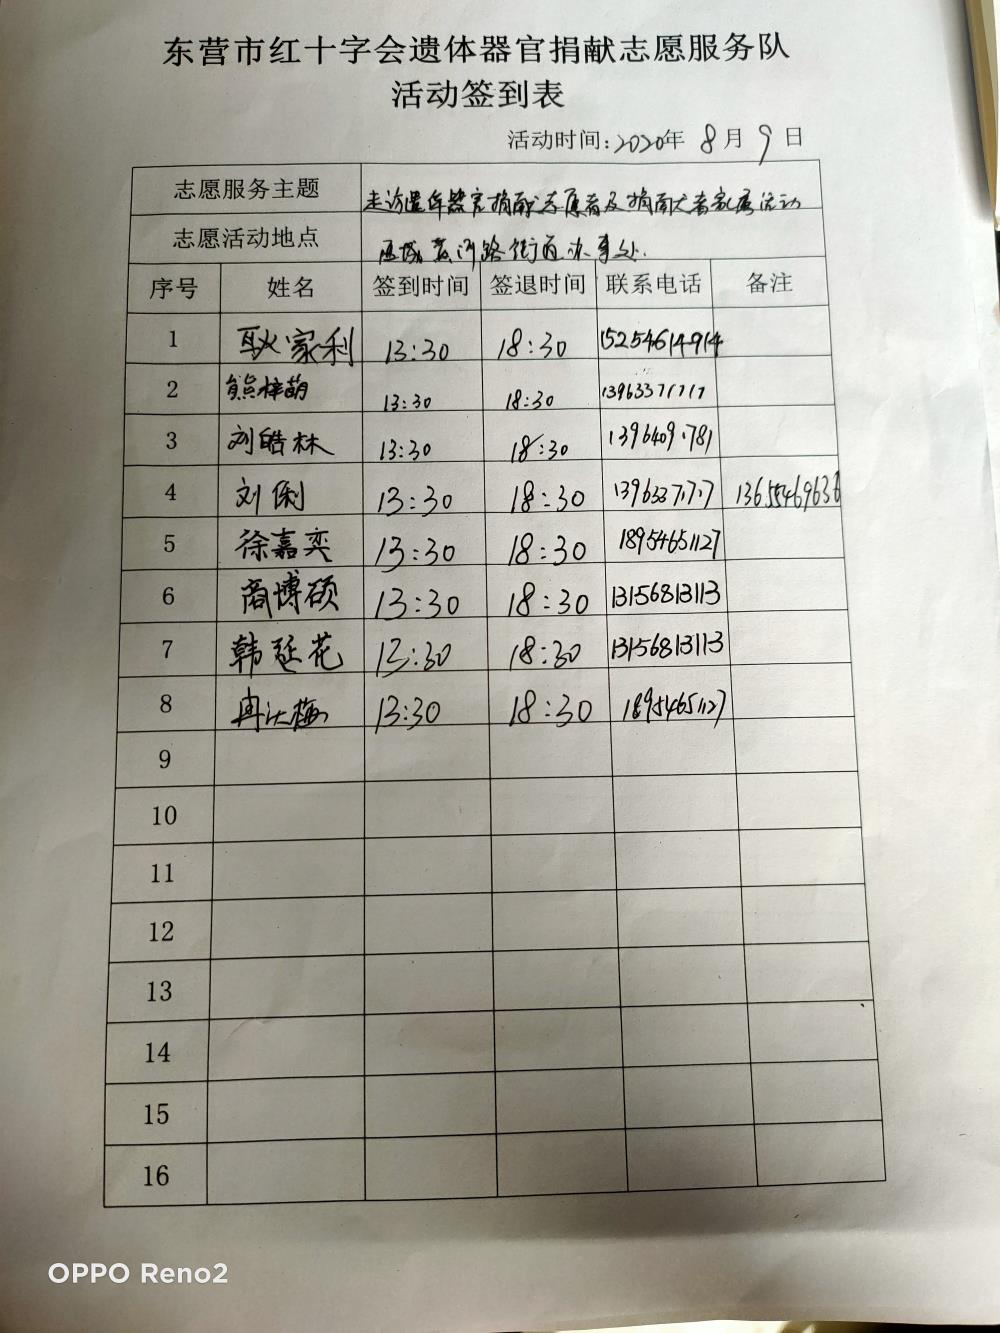 东营市红十字会遗体器官捐献志愿服务队
活动签到表
活动时间:2020年 8月 9日
志愿服务主题 走访遗体器官捐献志愿者及捐献者家属活动
志愿活动地点 区域黄河路街道办事处.
序号 姓名 签到时间 签退时间 联系电话 备注
1 耿家利 13:30 18:30 15254614914
2 熊梓萌 13:30 18:30 13963371717
3 刘皓林 13:30 18:30
4 刘俐 13:30 18:30 13963371717 13655469636
5 徐嘉奕 13:30 18:30 18954651127
6 商博硕 13:30 18:30 13156813113
7 韩延花 13:30 18:30 13156813113
8 13:30 18:30 18954651127
9
10
11
12
13
14
15
16
OPPO Reno2